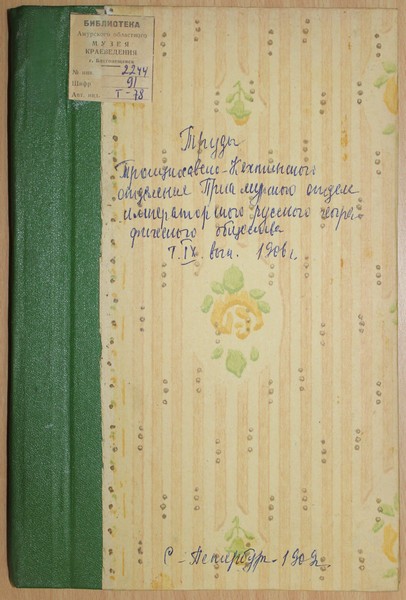 БИБЛИОТЕКА
Амурского областного
МУЗЕЯ
КРАЕВЕДЕНИЯ
г. Благовещенск
№ инв. 2244
Шифр 91
Авт. зн. Т-78
Труды
Троицкосавско-Кяхтинского
отделения Приамурского отдела
императорского русского геогра-
фического общества
Т. IX. вып. 1906 г.
С-Петербург-1909г.